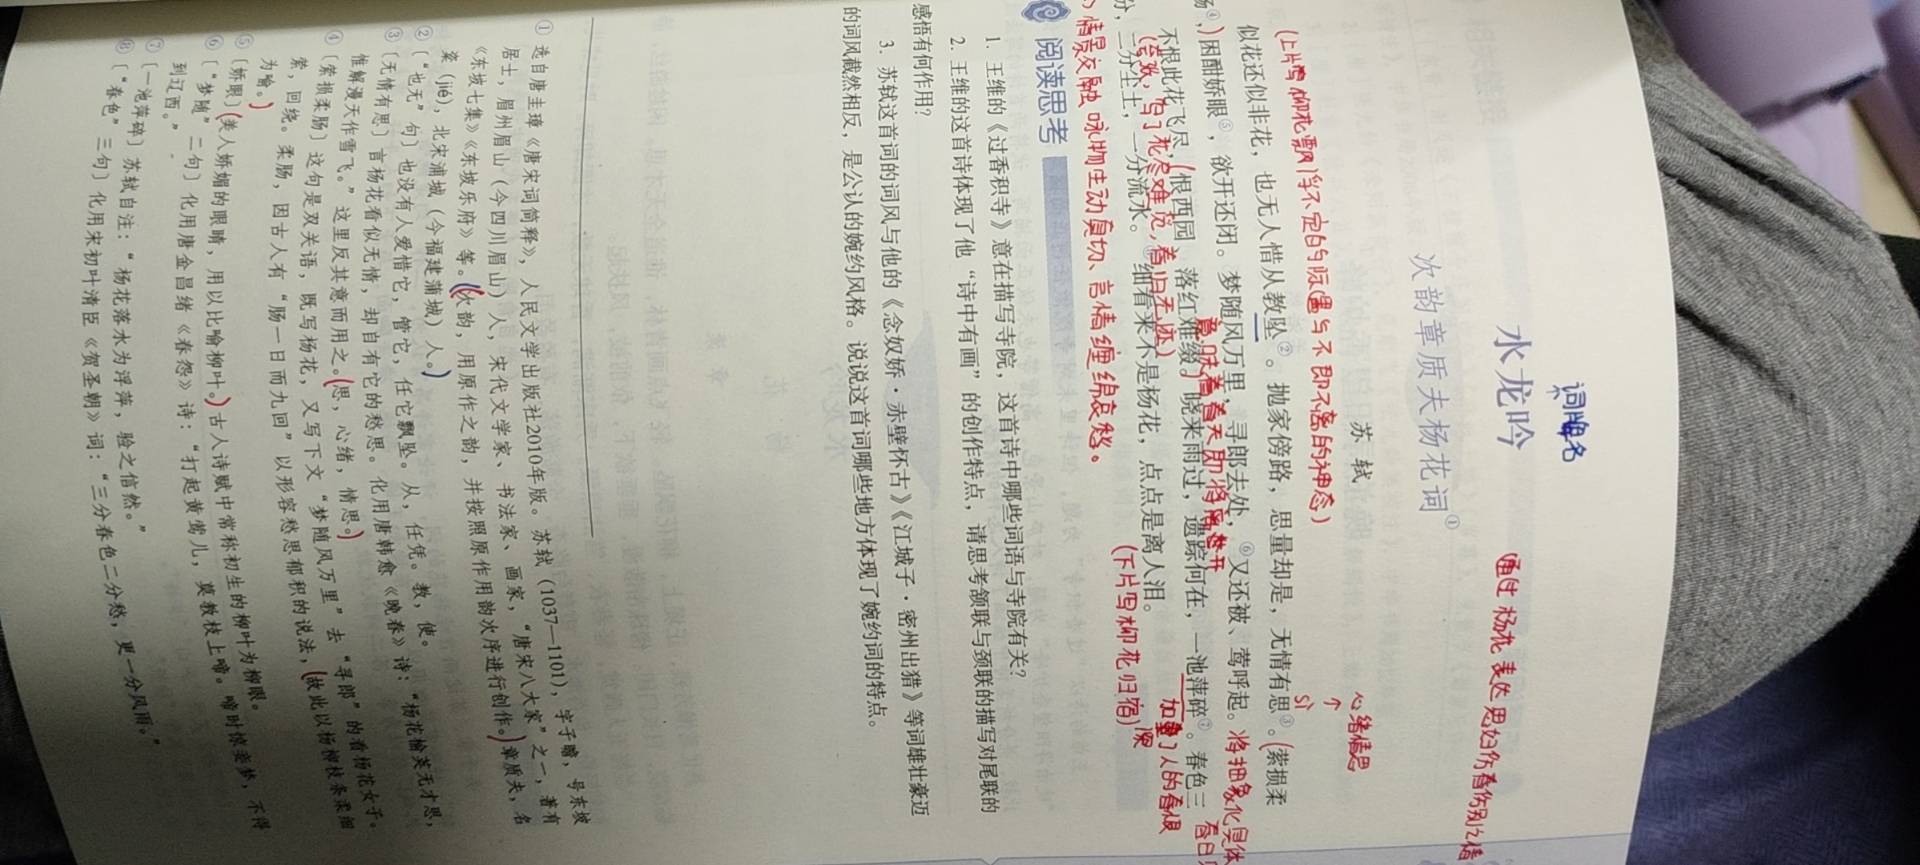 词牌名
水龙吟
次韵章质夫杨花词①
通过杨花表达思妇伤春伤别之情
苏 轼
心绪情思
(上片写柳花飘浮不定的际遇与不即不离的神态)
sī
似花还似非花，也无人惜从教坠②。抛家傍路，思量却是，无情有思③。(萦损柔
肠④,)困酣娇眼⑤，欲开还闭。梦随风万里，寻郎去处，⑥又还被、莺呼起。
将抽象化具体
意味着春天即将离开
不恨此花飞尽，(恨西园、落红难缀。)晓来雨过，遗踪何在，一池萍碎⑦。春色三
写了花尽难觅，春归无迹)
加重了人的春恨
分，二分尘土，一分流水。细看来不是杨花，点点是离人泪。
(下片写柳花归宿)
情景交融 咏物生动真切、言情缠绵哀愁。
阅读思考
1. 王维的《过香积寺》意在描写寺院，这首诗中哪些词语与寺院有关？
2. 王维的这首诗体现了他“诗中有画”的创作特点，请思考颔联与颈联的描写对尾联的
感悟有何作用？
3. 苏轼这首词的词风与他的《念奴娇·赤壁怀古》《江城子·密州出猎》等词雄壮豪迈
的词风截然相反，是公认的婉约风格。说说这首词哪些地方体现了婉约词的特点。
① 选自唐圭璋《唐宋词简释》，人民文学出版社2010年版。苏轼（1037—1101），字子瞻，号东坡
居士，眉州眉山（今四川眉山）人，宋代文学家、书法家、画家，“唐宋八大家”之一，著有
《东坡七集》《东坡乐府》等。(次韵，用原作之韵，并按照原作用韵次序进行创作。)章质夫，名
楶（jié），北宋浦城（今福建蒲城）人。)
② 〔“也无”句〕也没有人爱惜它，管它，任它飘坠。从，任凭。教，使。
③ 〔无情有思〕言杨花看似无情，却自有它的愁思。化用唐韩愈《晚春》诗：“杨花榆荚无才思，
惟解漫天作雪飞。”这里反其意而用之。(思，心绪，情思。)
④ 〔萦损柔肠〕这句是双关语，既写杨花，又写下文“梦随风万里”去“寻郎”的看杨花女子。
萦，回绕。柔肠，因古人有“肠一日而九回”以形容愁思郁积的说法，(故此以杨柳枝条柔细
为喻。)
⑤ 〔娇眼〕(美人娇媚的眼睛，用以比喻柳叶。)古人诗赋中常称初生的柳叶为柳眼。
⑥ 〔“梦随”二句〕化用唐金昌绪《春怨》诗：“打起黄莺儿，莫教枝上啼。啼时惊妾梦，不得
到辽西。”
⑦ 〔一池萍碎〕苏轼自注：“杨花落水为浮萍，验之信然。”
⑧ 〔“春色”三句〕化用宋初叶清臣《贺圣朝》词：“三分春色二分愁，更一分风雨。”